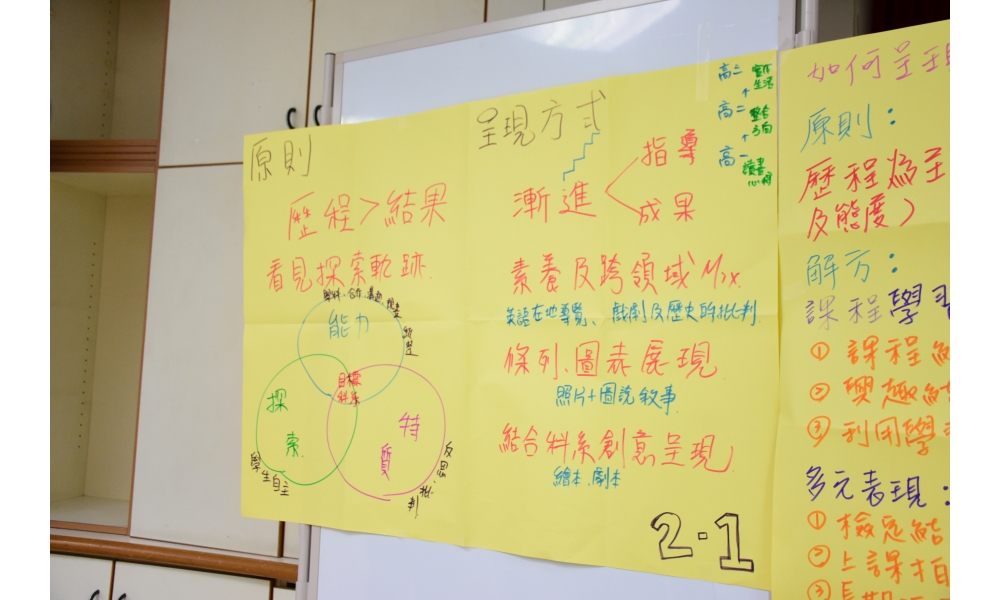 原則
歷程>結果
看見探索軌跡.
能力
目標
科系
探
索
特
質
學生自主
反思、批判
呈現方式
漸進
指導
成果
素養及跨領域Mix.
英語在地導覽、戲劇及歷史的批判
條列、圖表展現
照片+圖說敘事
結合科系創意呈現
繪本、劇本
高三 實作生活
↑
高二 整合方向
↑
高一 讀書心得
2-1
如何呈現
原則:
歷程為主
及態度)
解方:
課程學習
① 課程結
② 興趣結
③ 利用學習
多元表現:
① 檢定結
② 上課拍
③